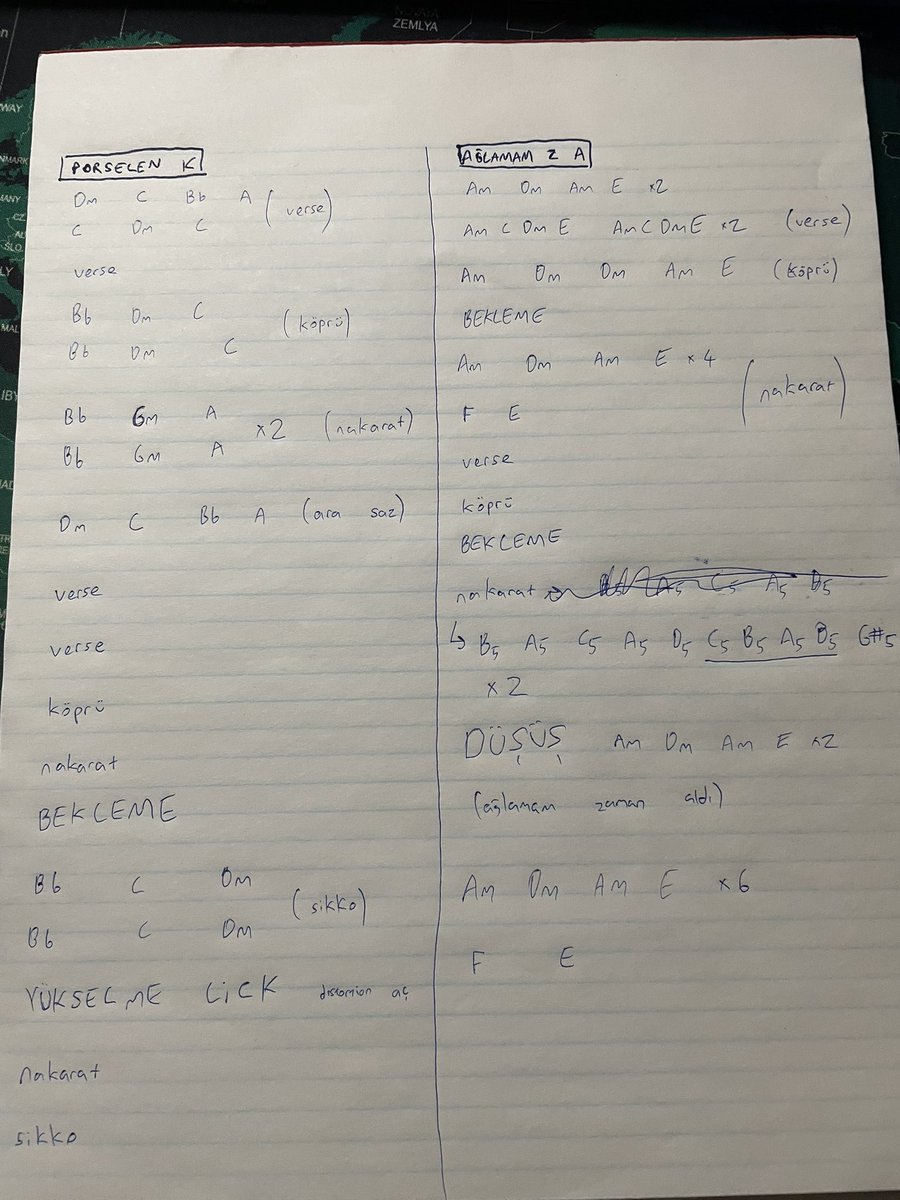 ZEMLYA
WAY
NMARK
PORSELEN K
Dm C Bb A (verse)
C Dm C
verse
Bb Dm C (köprü)
Bb Dm C
Bb Gm A x2 (nakarat)
Bb Gm A
Dm C Bb A (ara saz)
verse
verse
köprü
nakarat
BEKLEME
Bb C Dm (sikko)
Bb C Dm
YÜKSELME LiCK aç
nakarat
sikko
AĞLAMAM Z A
Am Dm Am E x2
Am C Dm E Am C Dm E x2 (verse)
Am Dm Dm Am E (köprü)
BEKLEME
Am Dm Am E x4 (nakarat)
F E
verse
köprü
BEKLEME
nakarat A5 C5 A5 B5
↳ B5 A5 C5 A5 D5 C5 B5 A5 B5 G#5
x2
DÜŞÜŞ Am Dm Am E x2
(ağlamam zaman aldı)
Am Dm Am E x6
F E